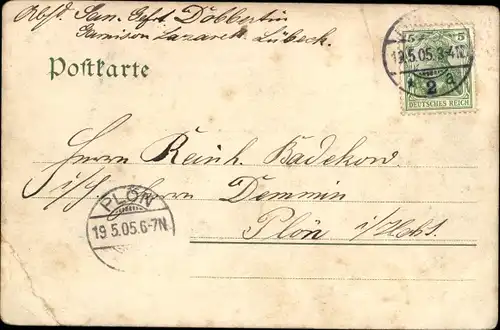 Abs. San. Gefr. Döbbertin
Garnison Lazarett Lübeck.
Postkarte
5 5
19.5.05.3-4N.
* 2 a
DEUTSCHES REICH
Herrn Reinh. Badekow
i/H. Herrn Demmin
Plön i/Holst.
PLÖN
19.5.05.6-7N.